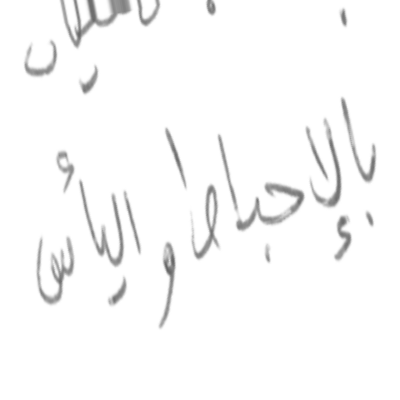 بالإحباط واليأس